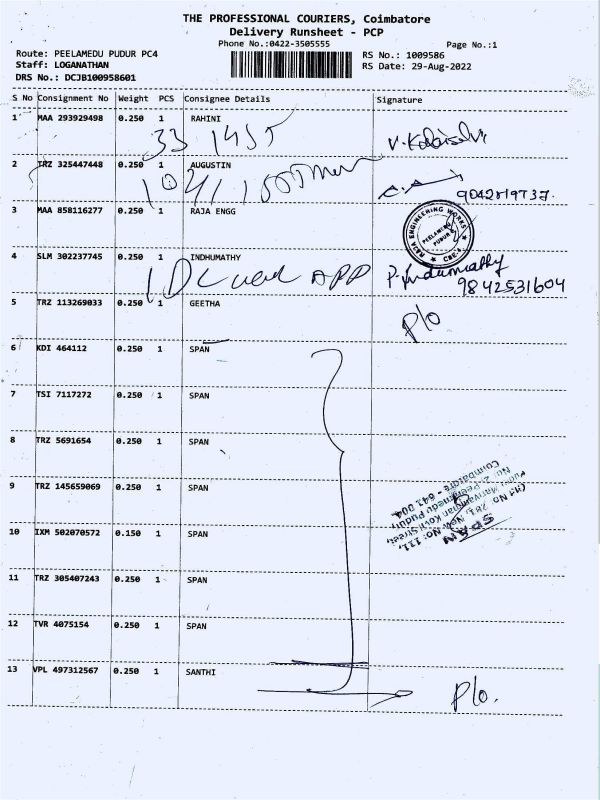 THE PROFESSIONAL COURIERS, Coimbatore
Delivery Runsheet - PCP
Phone No.:0422-3505555
Page No.:1
Route: PEELAMEDU PUDUR PC4
Staff: LOGANATHAN
DRS No.: DCJB100958601
RS No.: 1009586
RS Date: 29-Aug-2022
S No Consignment No Weight PCS Consignee Details Signature
1 MAA 293929498 0.250 1 RAHINI
33 1455
2 TRZ 325447448 0.250 1 AUGUSTIN
9042819737.
3 MAA 858116277 0.250 1 RAJA ENGG
RAJA ENGINEERING WORKS
PEELAMEDU
PUDUR
CBE-4
4 SLM 302237745 0.250 1 INDHUMATHY P. Indumathy
APP 9842531604
5 TRZ 113269033 0.250 1 GEETHA P/o
6 KDI 464112 0.250 1 SPAN
7 TSI 7117272 0.250 1 SPAN
8 TRZ 5691654 0.250 1 SPAN
9 TRZ 145659069 0.250 1 SPAN
SPAN
Coimbatore - 641 004.
10 IXM 502070572 0.150 1 SPAN
11 TRZ 305407243 0.250 1 SPAN
12 TVR 4075154 0.250 1 SPAN
13 VPL 497312567 0.250 1 SANTHI P/o.